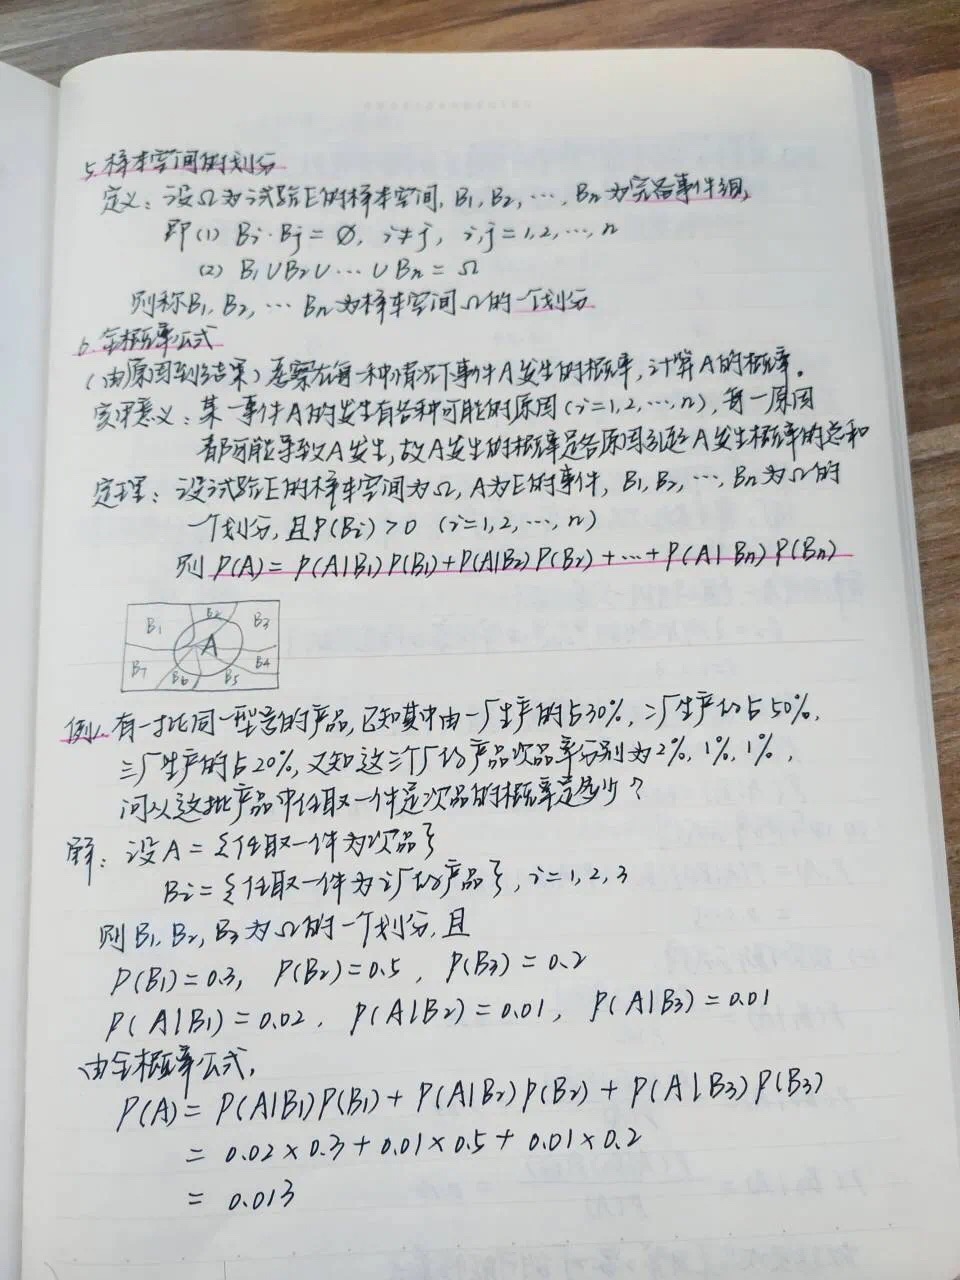 5.样本空间的划分
定义:设Ω为试验E的样本空间,B₁,B₂,…,Bn为完备事件组,
即(1) Bi·Bj=∅, i≠j, i,j=1,2,…,n
(2) B₁∪B₂∪…∪Bn=Ω
则称B₁,B₂,…Bn为样本空间Ω的一个划分
6.全概率公式
(由原因到结果)考察在每一种情况下事件A发生的概率,计算A的概率。
实际意义:某一事件A的发生有各种可能的原因(i=1,2,…,n),每一原因
都可能导致A发生,故A发生的概率是各原因引起A发生概率的总和
定理:设试验E的样本空间为Ω,A为E的事件,B₁,B₂,…,Bn为Ω的
一个划分,且P(Bi)>0 (i=1,2,…,n)
则P(A)=P(A|B₁)P(B₁)+P(A|B₂)P(B₂)+…+P(A|Bn)P(Bn)
B₁ B₂ B₃
A
B₇ B₆ B₅ B₄
例1.有一批同一型号的产品,已知其中由一厂生产的占30%,二厂生产的占50%,
三厂生产的占20%,又知这三个厂的产品次品率分别为2%,1%,1%,
问从这批产品中任取一件是次品的概率是多少?
解:设A={任取一件为次品}
Bi={任取一件为i厂的产品},i=1,2,3
则B₁,B₂,B₃为Ω的一个划分,且
P(B₁)=0.3, P(B₂)=0.5, P(B₃)=0.2
P(A|B₁)=0.02, P(A|B₂)=0.01, P(A|B₃)=0.01
由全概率公式,
P(A)=P(A|B₁)P(B₁)+P(A|B₂)P(B₂)+P(A|B₃)P(B₃)
=0.02×0.3+0.01×0.5+0.01×0.2
=0.013